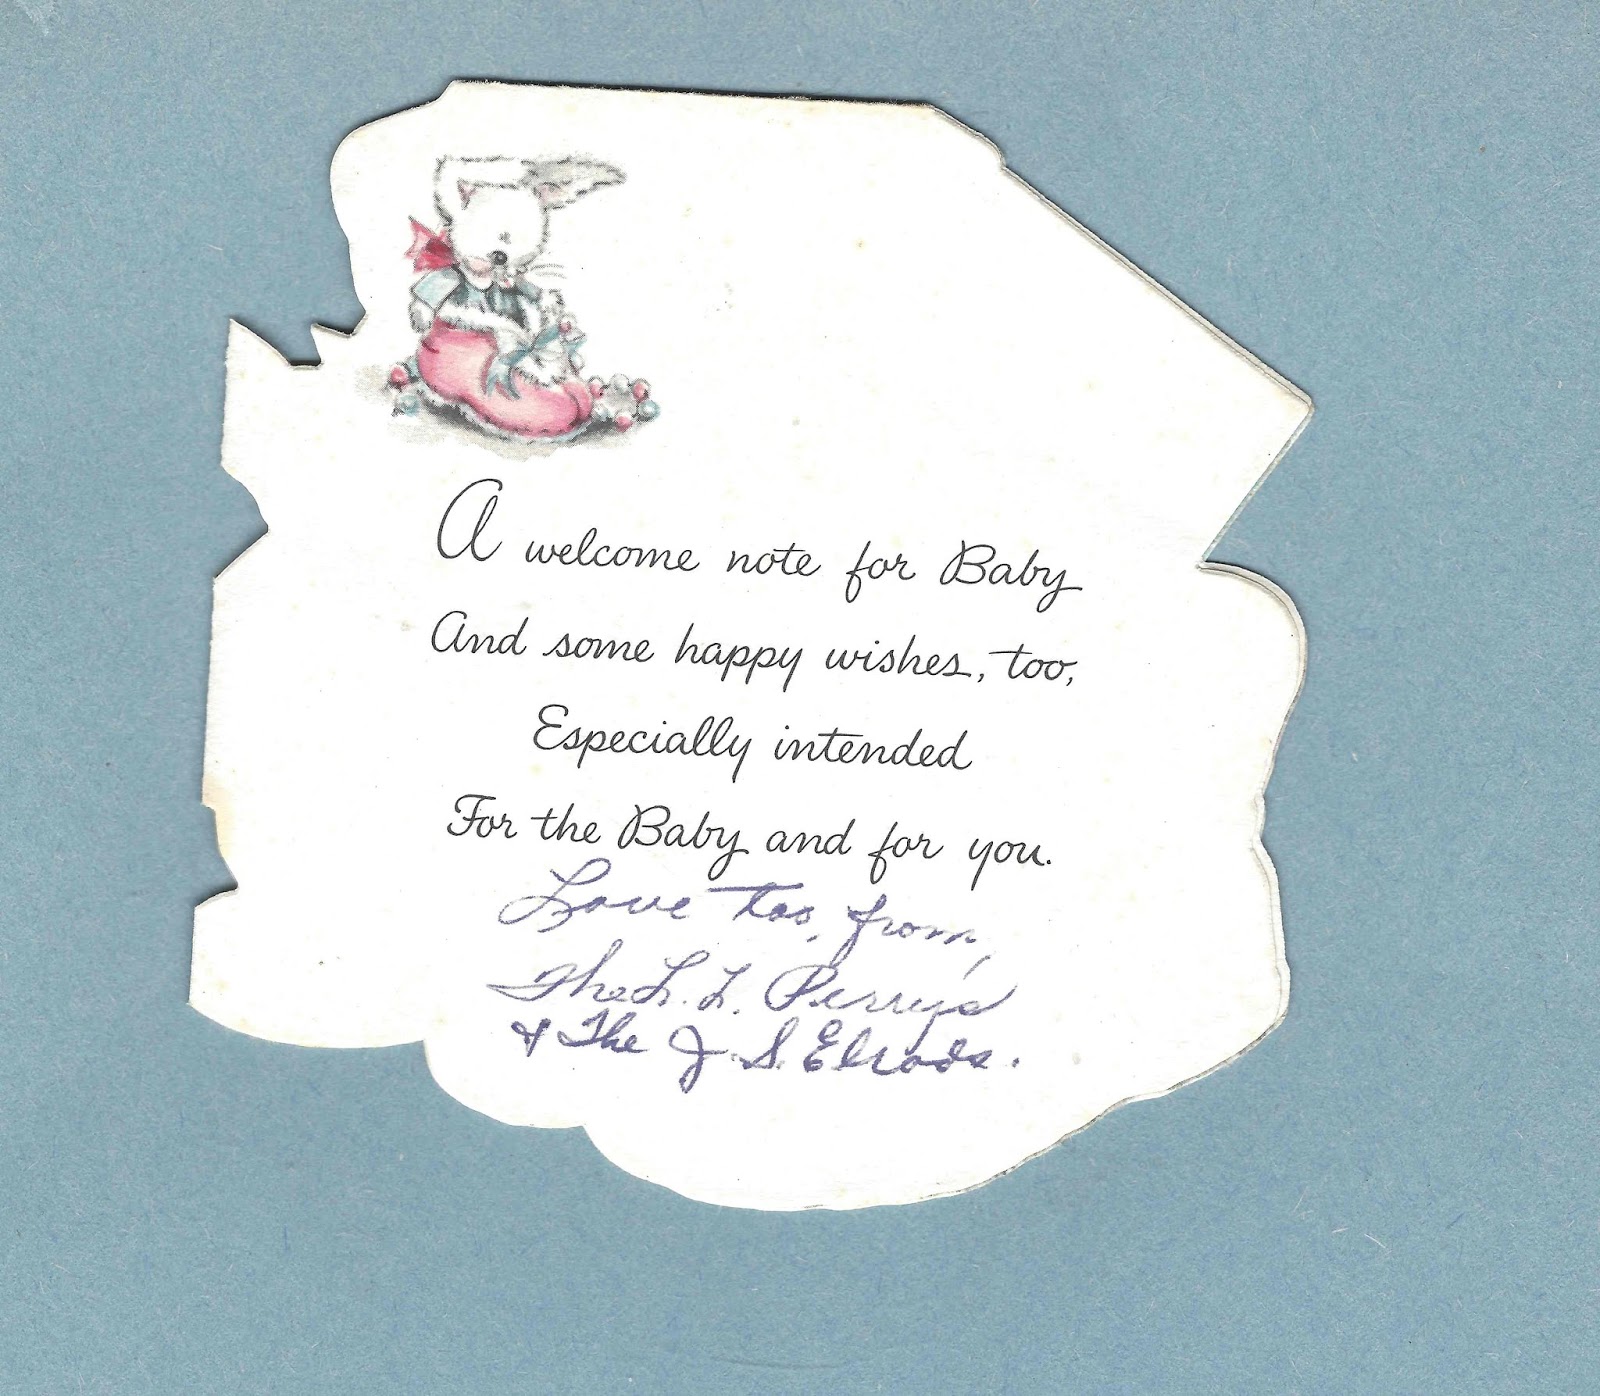 A welcome note for Baby
And some happy wishes, too,
Especially intended
For the Baby and for you.
Love too, from,
The L. L. Perrys
& The J. S. Elrods.